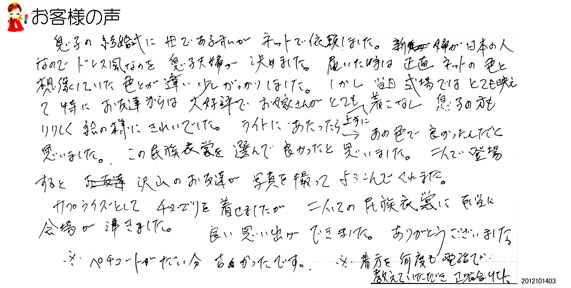 お客様の声
息子の結婚式に母であるすいがネットで依頼しました。新婦が日本の人
なのでドレス風なのを息子夫婦が決めました。届いた時は正直ネットの色と
想像していた色とが違い少しがっかりしました。しかし当日式場ではとても映え
て特にお友達からは大好評でお嫁さんがとても上手に着こなし息子の方も
りりしく絵の様にきれいでした。ライトにあたったらあの色で良かったんだと
思いました。この民族衣裳を選んで良かったと思いました。二人で登場
すると沢山のお友達が写真を撮ってよろこんでくれました。
サプライズとしてチョゴリを着せましたが二人しての民族衣裳に
会場が沸きました。良い思い出ができました。ありがとうございました
※ペチコートがない分
※着方を何度も電話で
教えていただき
2012101403